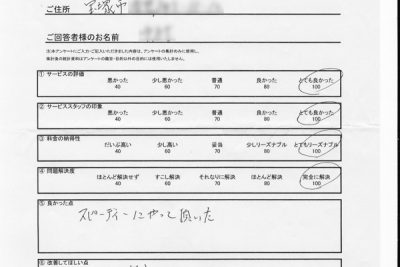 ご住所 宝塚市
ご回答者様のお名前
① サービスの評価
悪かった 少し悪かった 普通 良かった とても良かった
40 60 70 80 100
② サービススタッフの印象
悪かった 少し悪かった 普通 良かった とても良かった
40 60 70 80 100
③ 料金の納得性
だいぶ高い 少し高い 妥当 少しリーズナブル とてもリーズナブル
40 60 70 80 100
④ 問題解決度
ほとんど解決せず すこし解決 それなりに解決 ほとんど解決 完全に解決
40 60 70 80 100
⑤ 良かった点
スピーディーにやって頂いた
⑥ 改善してほしい点